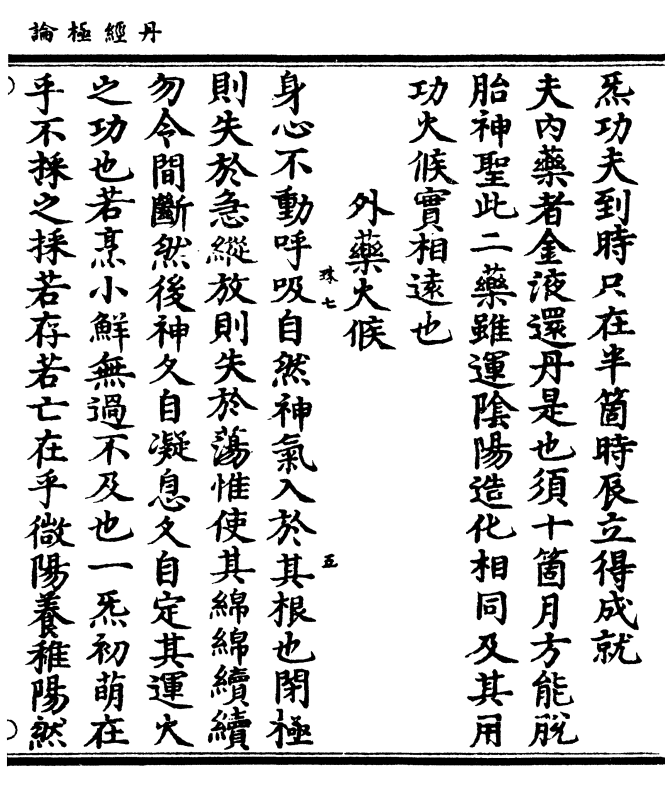 丹經極論
炁功夫到時只在半箇時辰立得成就
夫內藥者金液還丹是也須十箇月方能脫
胎神聖此二藥雖運陰陽造化相同及其用
功火候實相遠也
外藥火候
身心不動呼吸自然神氣入於其根也閉極
則失於急縱放則失於蕩惟使其綿綿續續
勿令間斷然後神久自凝息久自定其運火
之功也若烹小鮮無過不及也一炁初萌在
乎不採之採若存若亡在乎微陽養稚陽然
珠七
五